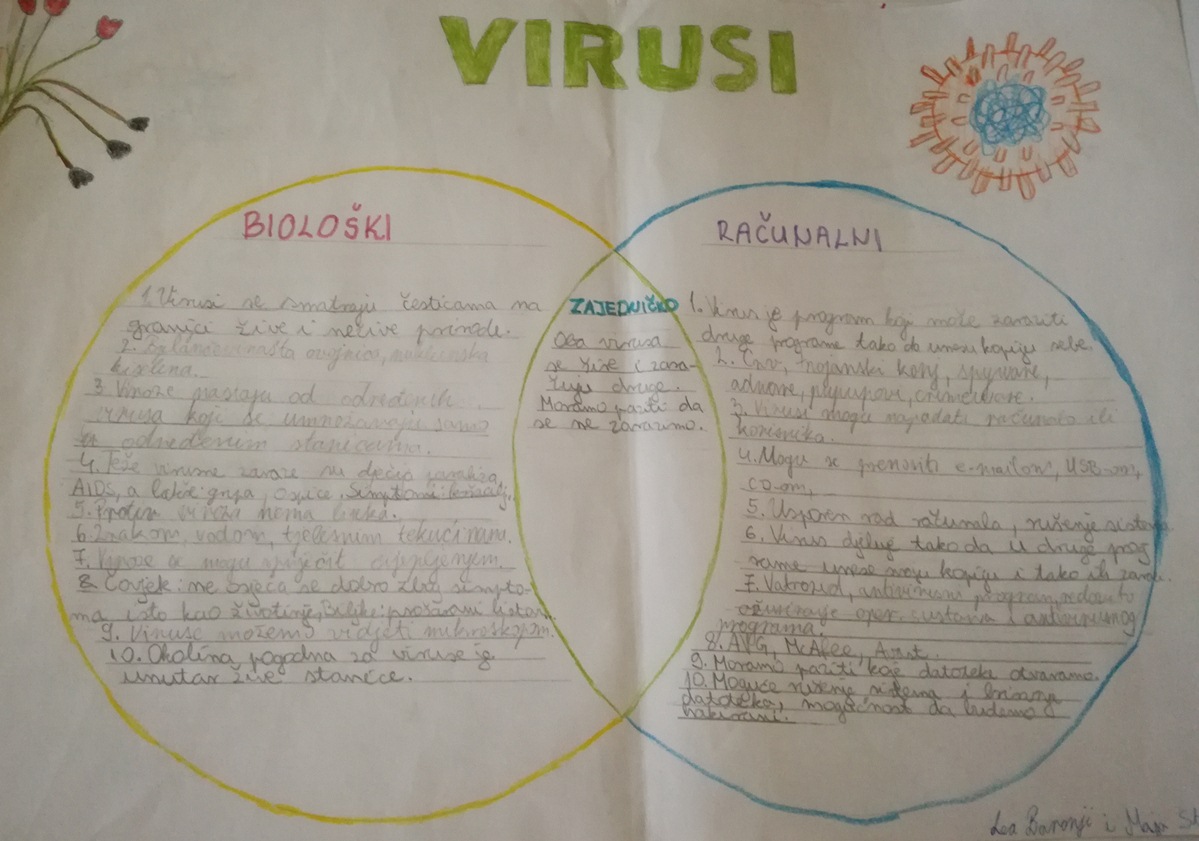 VIRUSI
BIOLOŠKI
1. Virusi se smatraju česticama na
granici žive i nežive prirode.
2. ovojnica,
kiselina.
3. Viroze nastaju od određenih
virusa koji se umnožavaju samo
u određenim stanicama.
4. Teže virusne zaraze su dječja paraliza,
AIDS, a lakše: gripa, ospice. Simptomi:
5. Protiv viroza nema lijeka.
6. Zrakom, vodom, tjelesnim tekućinama.
7. Viroze se mogu spriječit cijepljenjem.
8. Čovjek: ne osjeća se dobro zbog simpto-
ma isto kao životinje, Biljke: prošarani listovi.
9. Viruse možemo vidjeti mikroskopom.
10. Okolina pogodna za viruse je
unutar žive stanice.
ZAJEDNIČKO
Oba virusa
se šire i zara-
žuju druge.
Moramo paziti da
se ne zarazimo.
RAČUNALNI
1. Virus je program koji može zaraziti
druge programe tako da unesu kopiju sebe.
2. Crv, trojanski konj, spyware,
adware, crimeware.
3. Virusi mogu napadati računalo ili
korisnika.
4. Mogu se prenositi e-mailom, USB-om,
CD-om,
5. Usporen rad računala, rušenje sistema
6. Virus djeluje tako da u druge prog
rame unese svoju kopiju i tako ih zarazi.
7. Vatrozid, antivirusni program, redovito
ažuriranje oper. sustava i antivirusnog
programa.
8. AVG, McAfee, Avast.
9. Moramo paziti koje datoteke otvaramo.
10. Moguće rušenje sistema i brisanje
datoteka, mogućnost da budemo
hakirani.
Lea Baronji i Maja